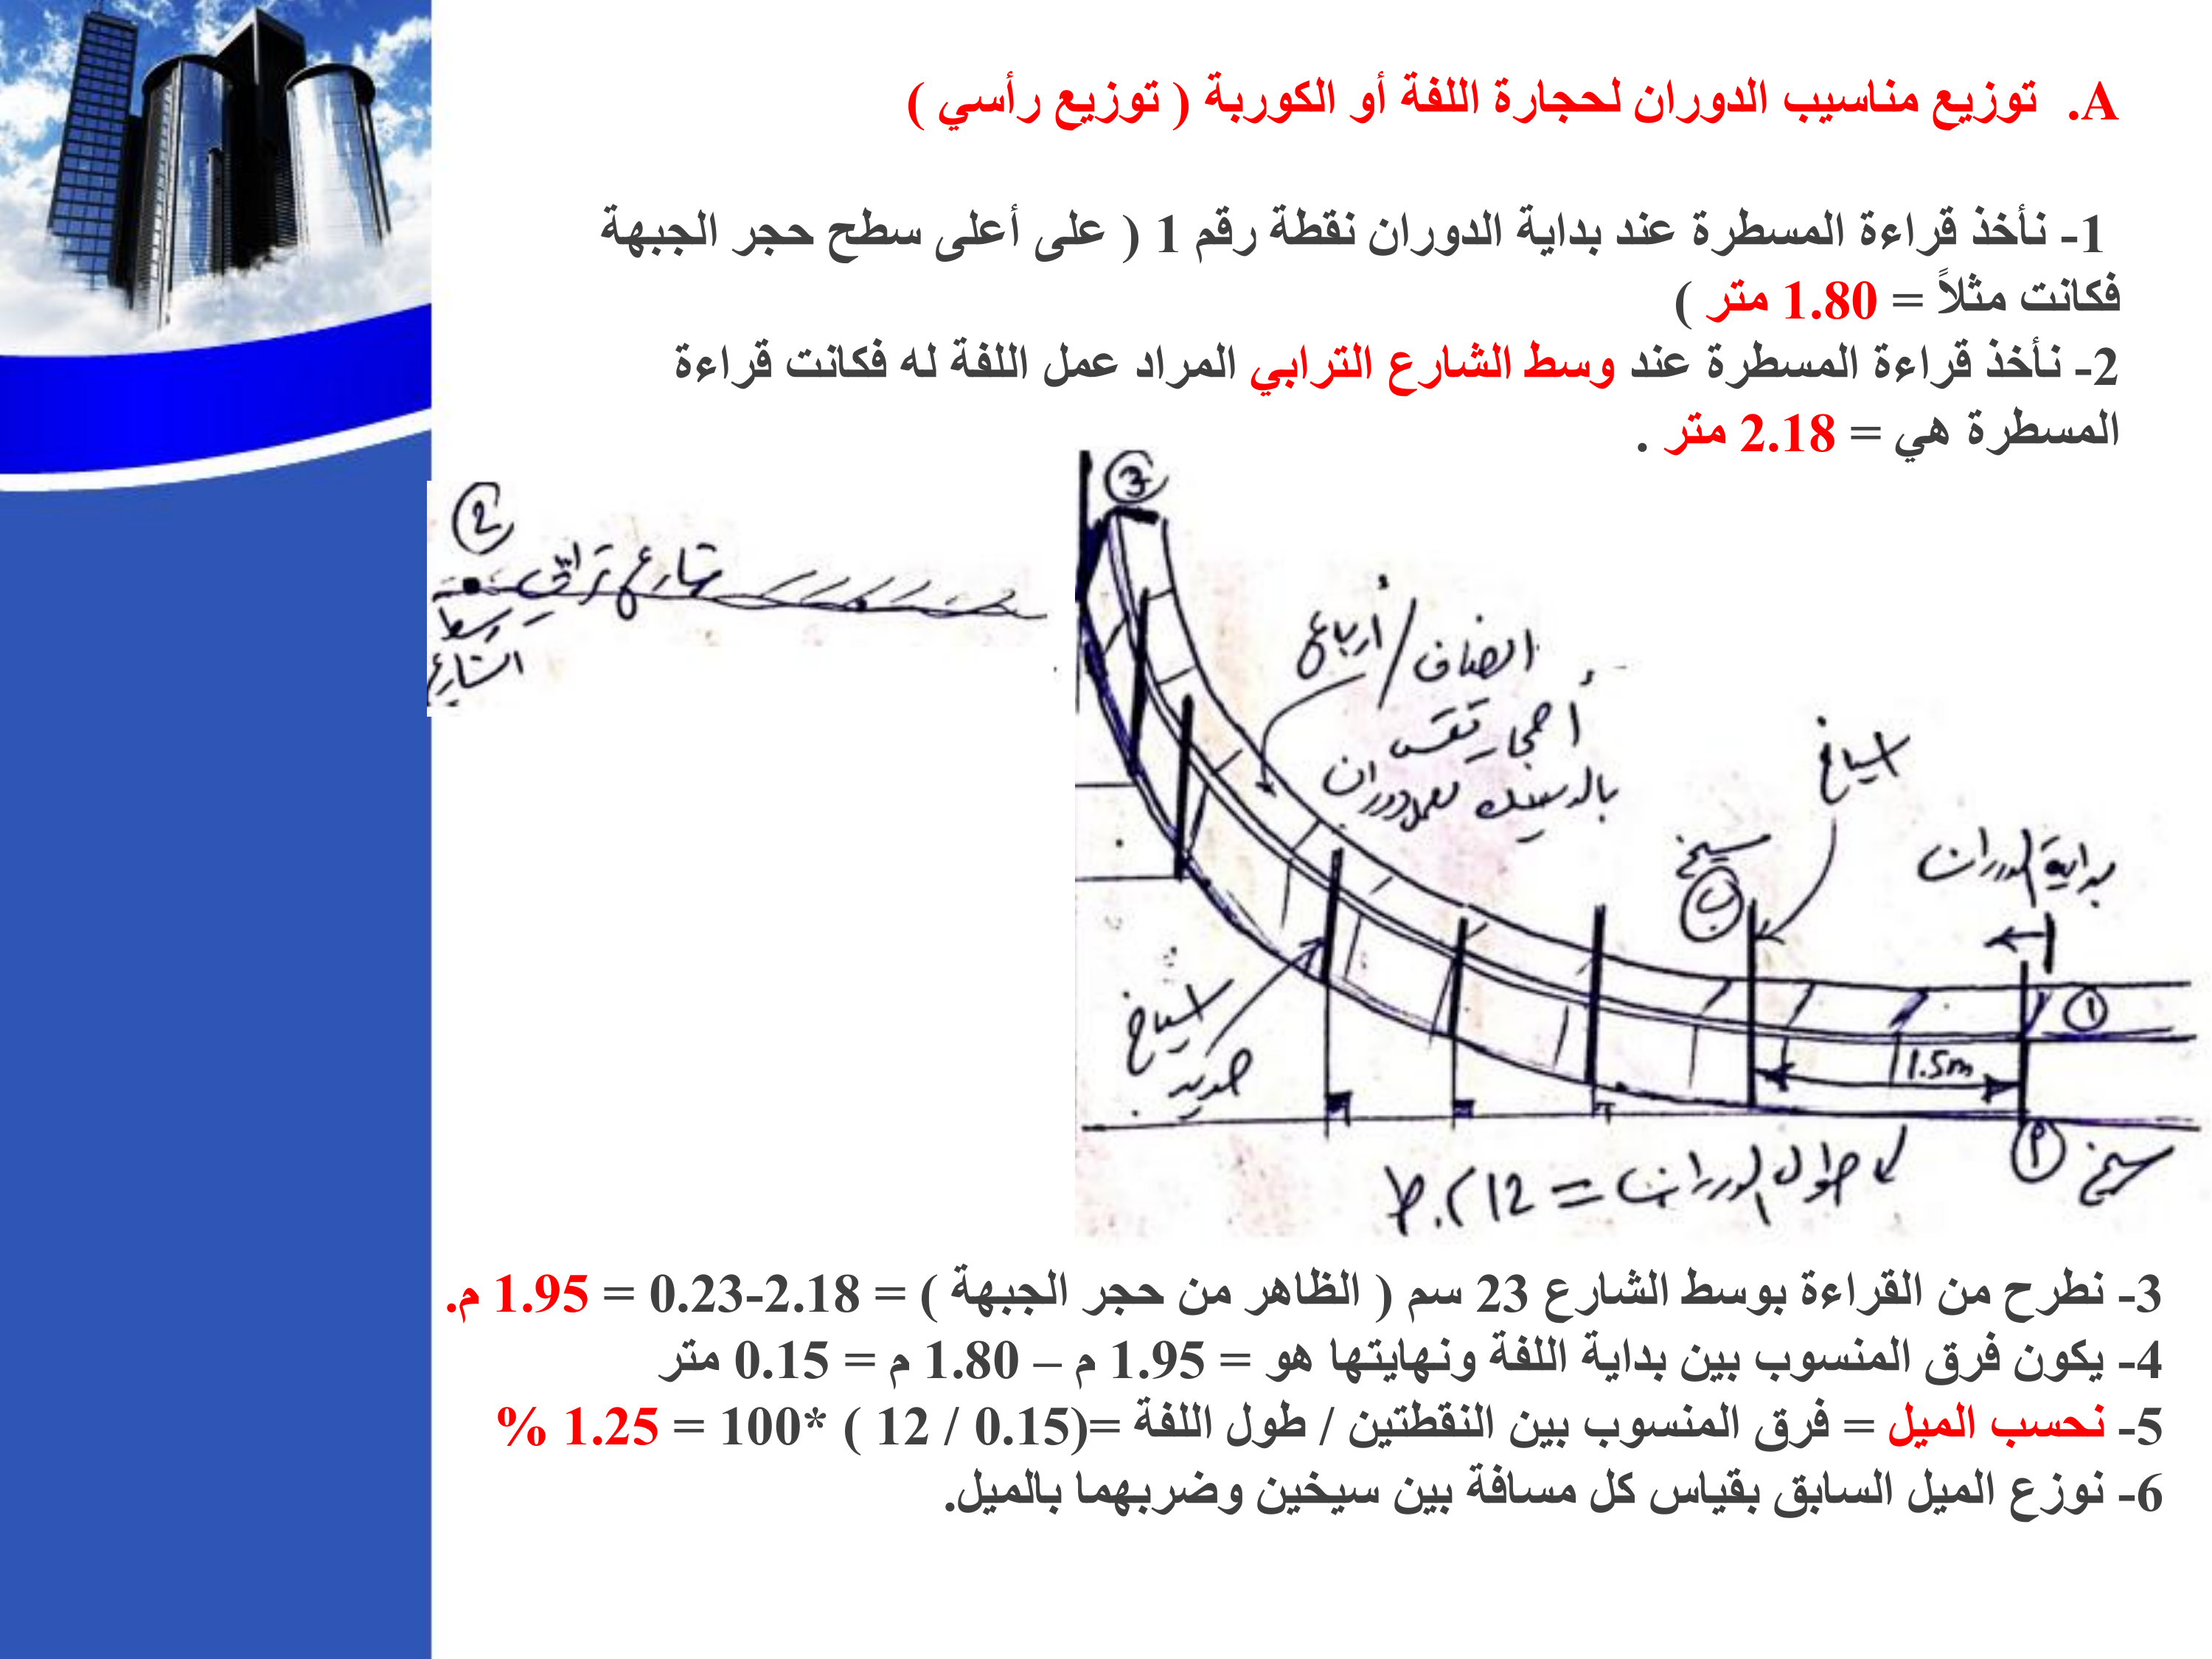 A. توزيع مناسيب الدوران لحجارة اللفة أو الكوربة ( توزيع رأسي )
1- نأخذ قراءة المسطرة عند بداية الدوران نقطة رقم 1 ( على أعلى سطح حجر الجبهة
فكانت مثلاً = 1.80 متر )
2- نأخذ قراءة المسطرة عند وسط الشارع الترابي المراد عمل اللفة له فكانت قراءة
المسطرة هي = 2.18 متر .
3
2
شارع ترابي
وسط
الشارع
أرباع / انصاف
أحجار تقص
بالديسك لعمل دوران
اسياخ
سيخ
ب
بداية الدوران
1
اسياخ
حديد
1.5m
سيخ أ
طول الدوران = 12 م.ط
3- نطرح من القراءة بوسط الشارع 23 سم ( الظاهر من حجر الجبهة ) = 2.18-0.23 = 1.95 م.
4- يكون فرق المنسوب بين بداية اللفة ونهايتها هو = 1.95 م – 1.80 م = 0.15 متر
5- نحسب الميل = فرق المنسوب بين النقطتين / طول اللفة =(0.15 / 12 ) *100 = 1.25 %
6- نوزع الميل السابق بقياس كل مسافة بين سيخين وضربهما بالميل.